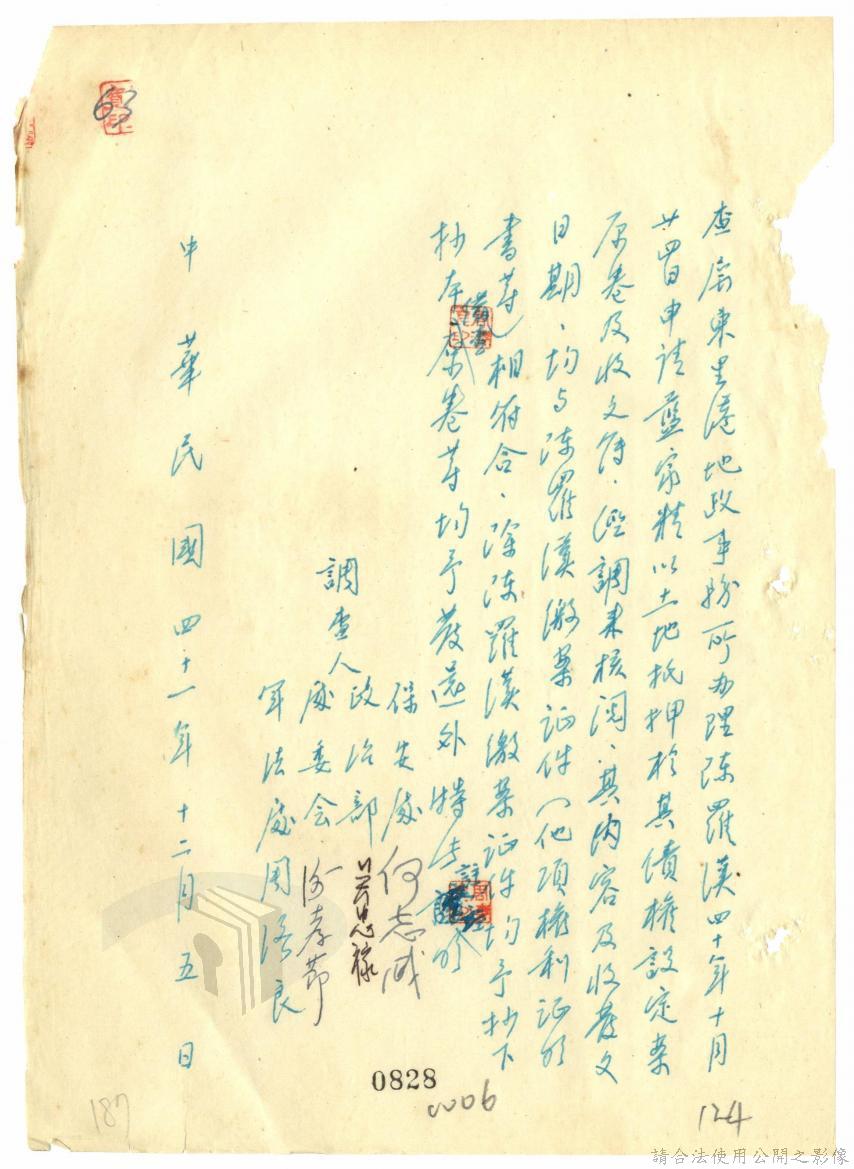 查屏東里港地政事務所办理陈羅漢四十年十月
廿四日申请藍家精以土地抵押於其債權設定案
原卷及收文簿、經調来核閱、其內容及收發文
日期、均与陈羅漢缴案证件(他項權利证明
書等)相符合、除陈羅漢缴案证件均予抄下
抄本備查原卷等均予發還外特此註明
調查人
保安處 何志成
政治部
處委会 孝節
軍法處 周洛良
中華民國四十一年十二月五日
63
0828
0006
187
124
請合法使用公開之影像